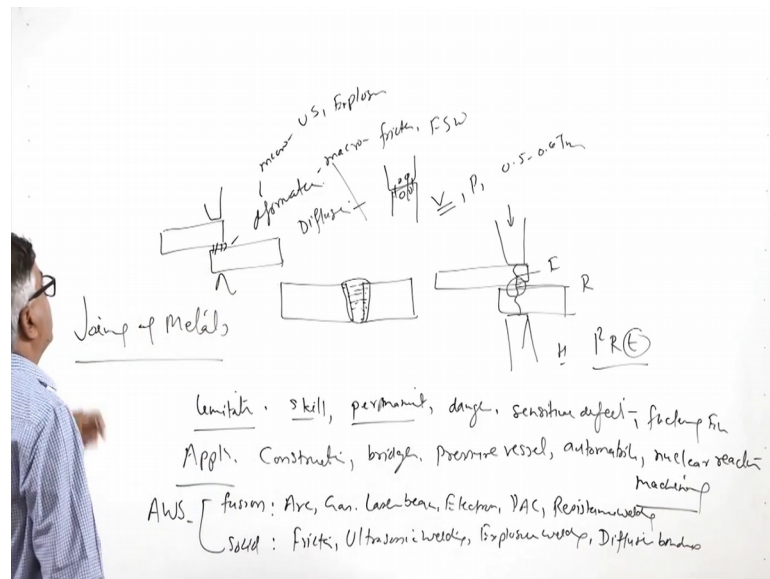 micro- US, Explosn
deformatn- macro- frictn, FSW
Diffusn- V, P, 0.5-0.6Tm
I
R
H I²R(t)
Joing of Metals
limitatn. skill, permanent, danger, sensitive defect-
Appli. Constructi, bridges, Pressure vessel, automobile, nuclear reactn
machining
AWS- fusion: Arc, Gas, Laser beam, Electron, PAC, Resistance weldg
Solid: Frictn, Ultrasonic weldg, Explosion weldg, Diffusn bondng